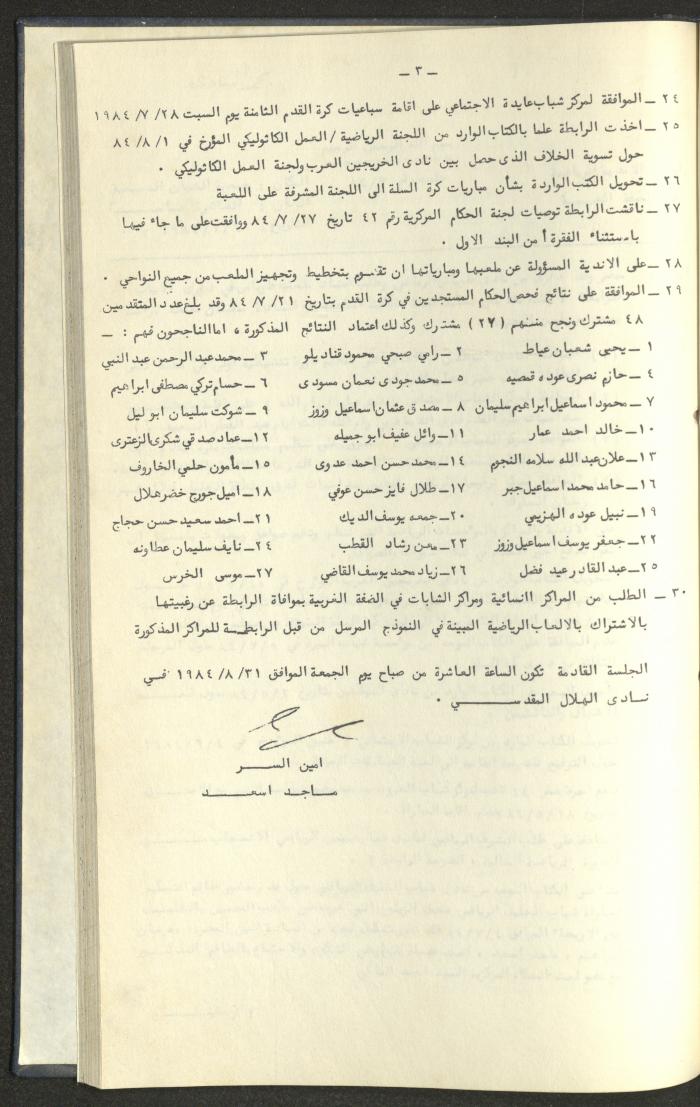 — ٣ —
٢٤ — الموافقة لمركز شباب عايدة الاجتماعي على اقامة سباعيات كرة القدم الثامنة يوم السبت ٢٨/ ٧/ ١٩٨٤
٢٥ — اخذت الرابطة علما بالكتاب الوارد من اللجنة الرياضية / العمل الكاثوليكي المؤرخ في ١/ ٨/ ٨٤
حول تسوية الخلاف الذي حصل بين نادى الخريجين العرب ولجنة العمل الكاثوليكي .
٢٦ — تحويل الكتب الواردة بشأن مباريات كرة السلة الى اللجنة المشرفة على اللعبة
٢٧ — ناقشت الرابطة توصيات لجنة الحكام المركزية رقم ٤٢ تاريخ ٢٧/ ٧/ ٨٤ ووافقت على ما جاء فيها
باستثناء الفقرة أ من البند الاول .
٢٨ — على الاندية المسؤولة عن ملعبها ومبارياتها ان تقوم بتخطيط وتجهيز الملعب من جميع النواحي .
٢٩ — الموافقة على نتائج فحص الحكام المستجدين في كرة القدم بتاريخ ٢١/ ٧/ ٨٤ وقد بلغ عدد المتقدمين
٤٨ مشترك ونجح منهم (٢٧) مشترك وكذلك اعتماد النتائج المذكورة ، اما الناجحون فهم : —
١ — يحيى شعبان عياط ٢ — رامي صبحي محمود قناديلو ٣ — محمد عبد الرحمن عبد النبي
٤ — حازم نصرى عوده قمصيه ٥ — محمد جودى نعمان مسودى ٦ — حسام تركي مصطفى ابراهيم
٧ — محمود اسماعيل ابراهيم سليمان ٨ — مصدق عثمان اسماعيل وزوز ٩ — شوكت سليمان ابو ليل
١٠ — خالد احمد عمار ١١ — وائل عفيف ابو جميله ١٢ — عماد صدقي شكرى الزعترى
١٣ — علان عبد الله سلامه النجوم ١٤ — محمد حسن احمد عدوى ١٥ — مأمون حلمي الخاروف
١٦ — حامد محمد اسماعيل جبر ١٧ — طلال فايز حسن عوفي ١٨ — اميل جورج خضر هلال
١٩ — نبيل عوده الهزيمي ٢٠ — جمعه يوسف الديك ٢١ — احمد سعيد حسن حجاج
٢٢ — جعفر يوسف اسماعيل وزوز ٢٣ — معن رشاد القطب ٢٤ — نايف سليمان عطاونه
٢٥ — عبد القادر عيد فضل ٢٦ — زياد محمد يوسف القاضي ٢٧ — موسى الخرس
٣٠ — الطلب من المراكز النسائية ومراكز الشابات في الضفة الغربية بموافاة الرابطة عن رغبيتها
بالاشتراك بالالعاب الرياضية المبينة في النموذج المرسل من قبل الرابطة للمراكز المذكورة
الجلسة القادمة تكون الساعة العاشرة من صباح يوم الجمعة الموافق ٣١/ ٨/ ١٩٨٤ في
نادى الهلال المقدسي .
امين السر
ماجد اسعد